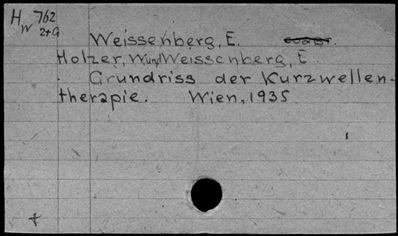 H 762
W 2+G
Weissenberg, E.
Holzer, W und Weissenberg, E.
Grundriss der Kurzwellen-
therapie. Wien, 1935